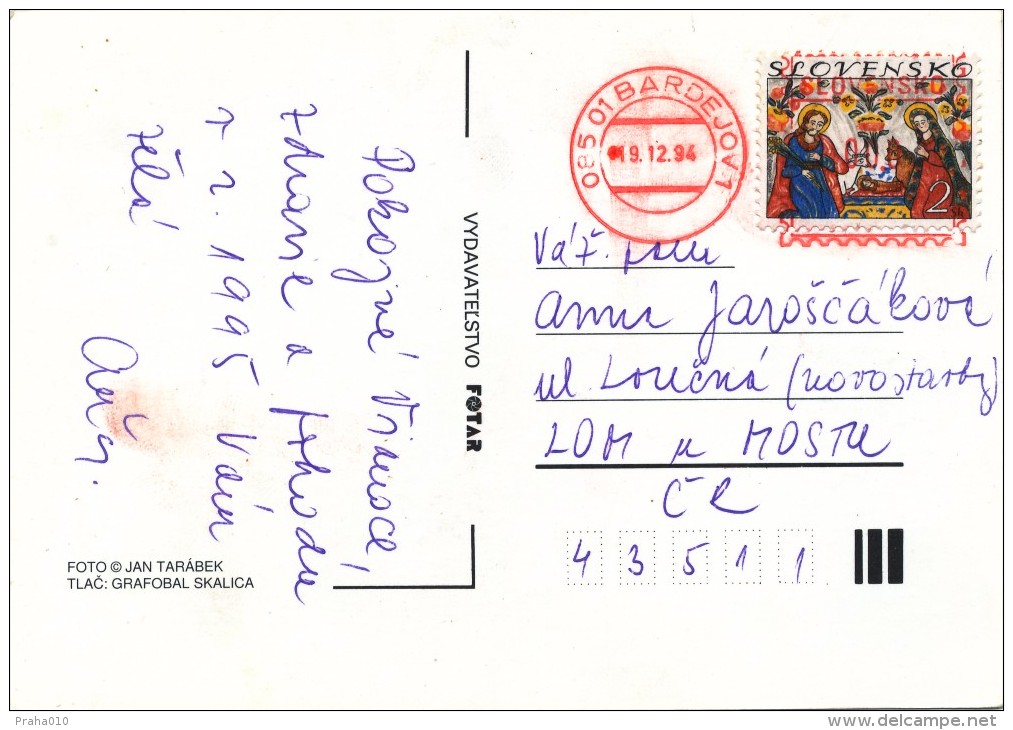 Pokojné Vianoce,
zdravie a pohodu
v r. 1995 Vám
želá
VYDAVATEĽSTVO FOTAR
FOTO © JAN TARÁBEK
TLAČ: GRAFOBAL SKALICA
085 01 BARDEJOV 1
19.12.94
SLOVENSKO
SLOVENSKO
2 Sk
Váž. pani
Anna Jaroščáková
ul Loučná (novostavby)
LOM u MOSTU
ČR
43511
Praha010
delcampe.net